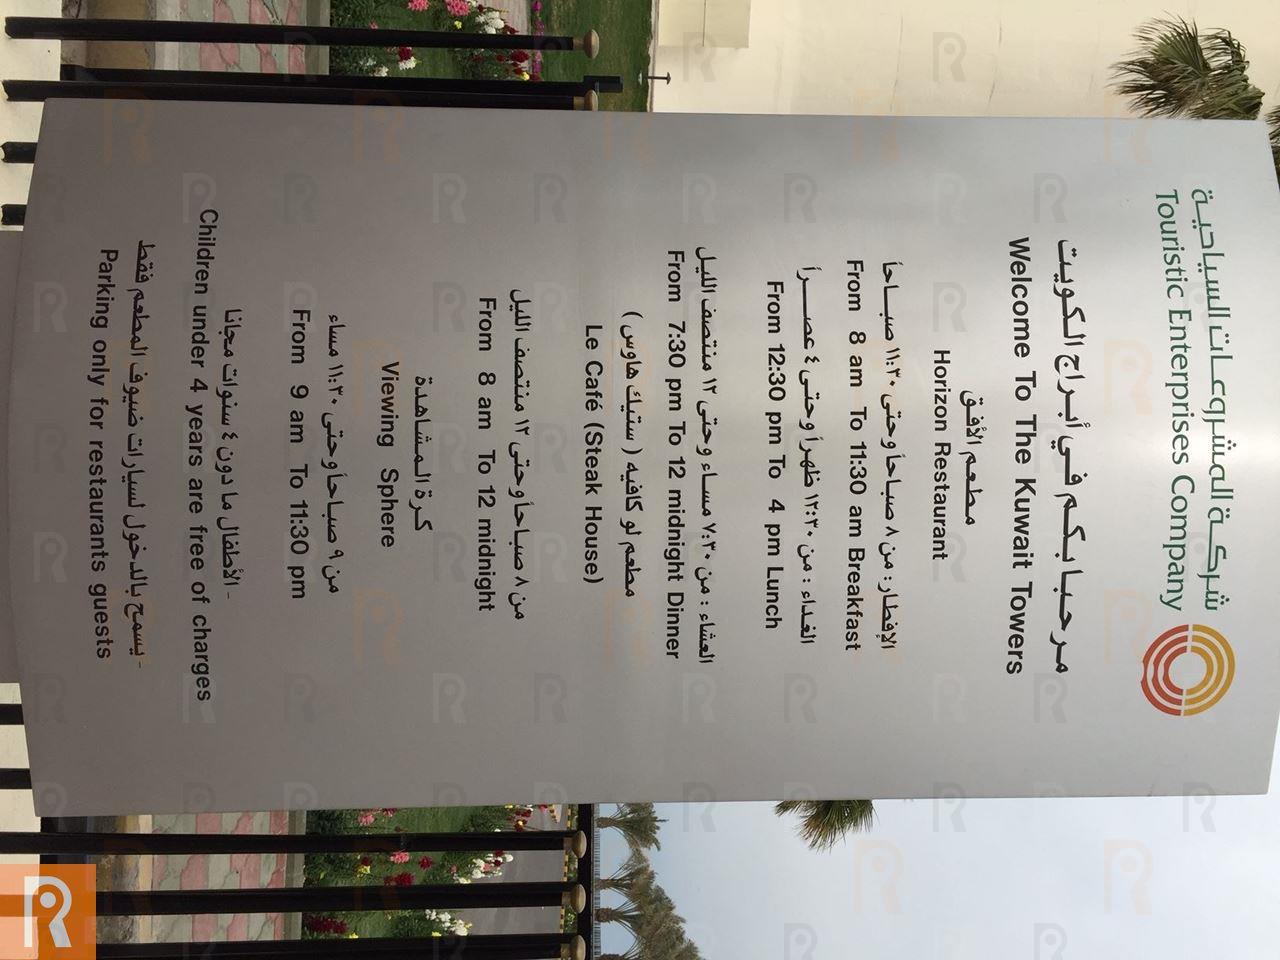 شركة المشروعات السياحية
Touristic Enterprises Company
مرحبا بكم في أبراج الكويت
Welcome To The Kuwait Towers
مطعم الأفق
Horizon Restaurant
الإفطار : من ٨ صباحاً وحتى ١١:٣٠ صباحاً
From 8 am To 11:30 am Breakfast
الغداء : من ١٢:٣٠ ظهراً وحتى ٤ عصراً
From 12:30 pm To 4 pm Lunch
العشاء : من ٧:٣٠ مساء وحتى ١٢ منتصف الليل
From 7:30 pm To 12 midnight Dinner
مطعم لو كافيه ( ستيك هاوس )
Le Café (Steak House)
من ٨ صباحاً وحتى ١٢ منتصف الليل
From 8 am To 12 midnight
كرة المشاهدة
Viewing Sphere
من ٩ صباحاً وحتى ١١:٣٠ مساء
From 9 am To 11:30 pm
- الأطفال ما دون ٤ سنوات مجانا
Children under 4 years are free of charges
- يسمح بالدخول لسيارات ضيوف المطعم فقط
Parking only for restaurants guests
R